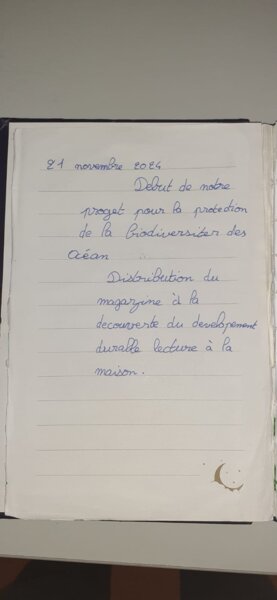 21 novembre 2024
Debut de notre
proget pour la protection
de la biodiversiter des
Océan
Distribution du
magarzine à la
decouverte du developement
duralle lecture à la
maison.